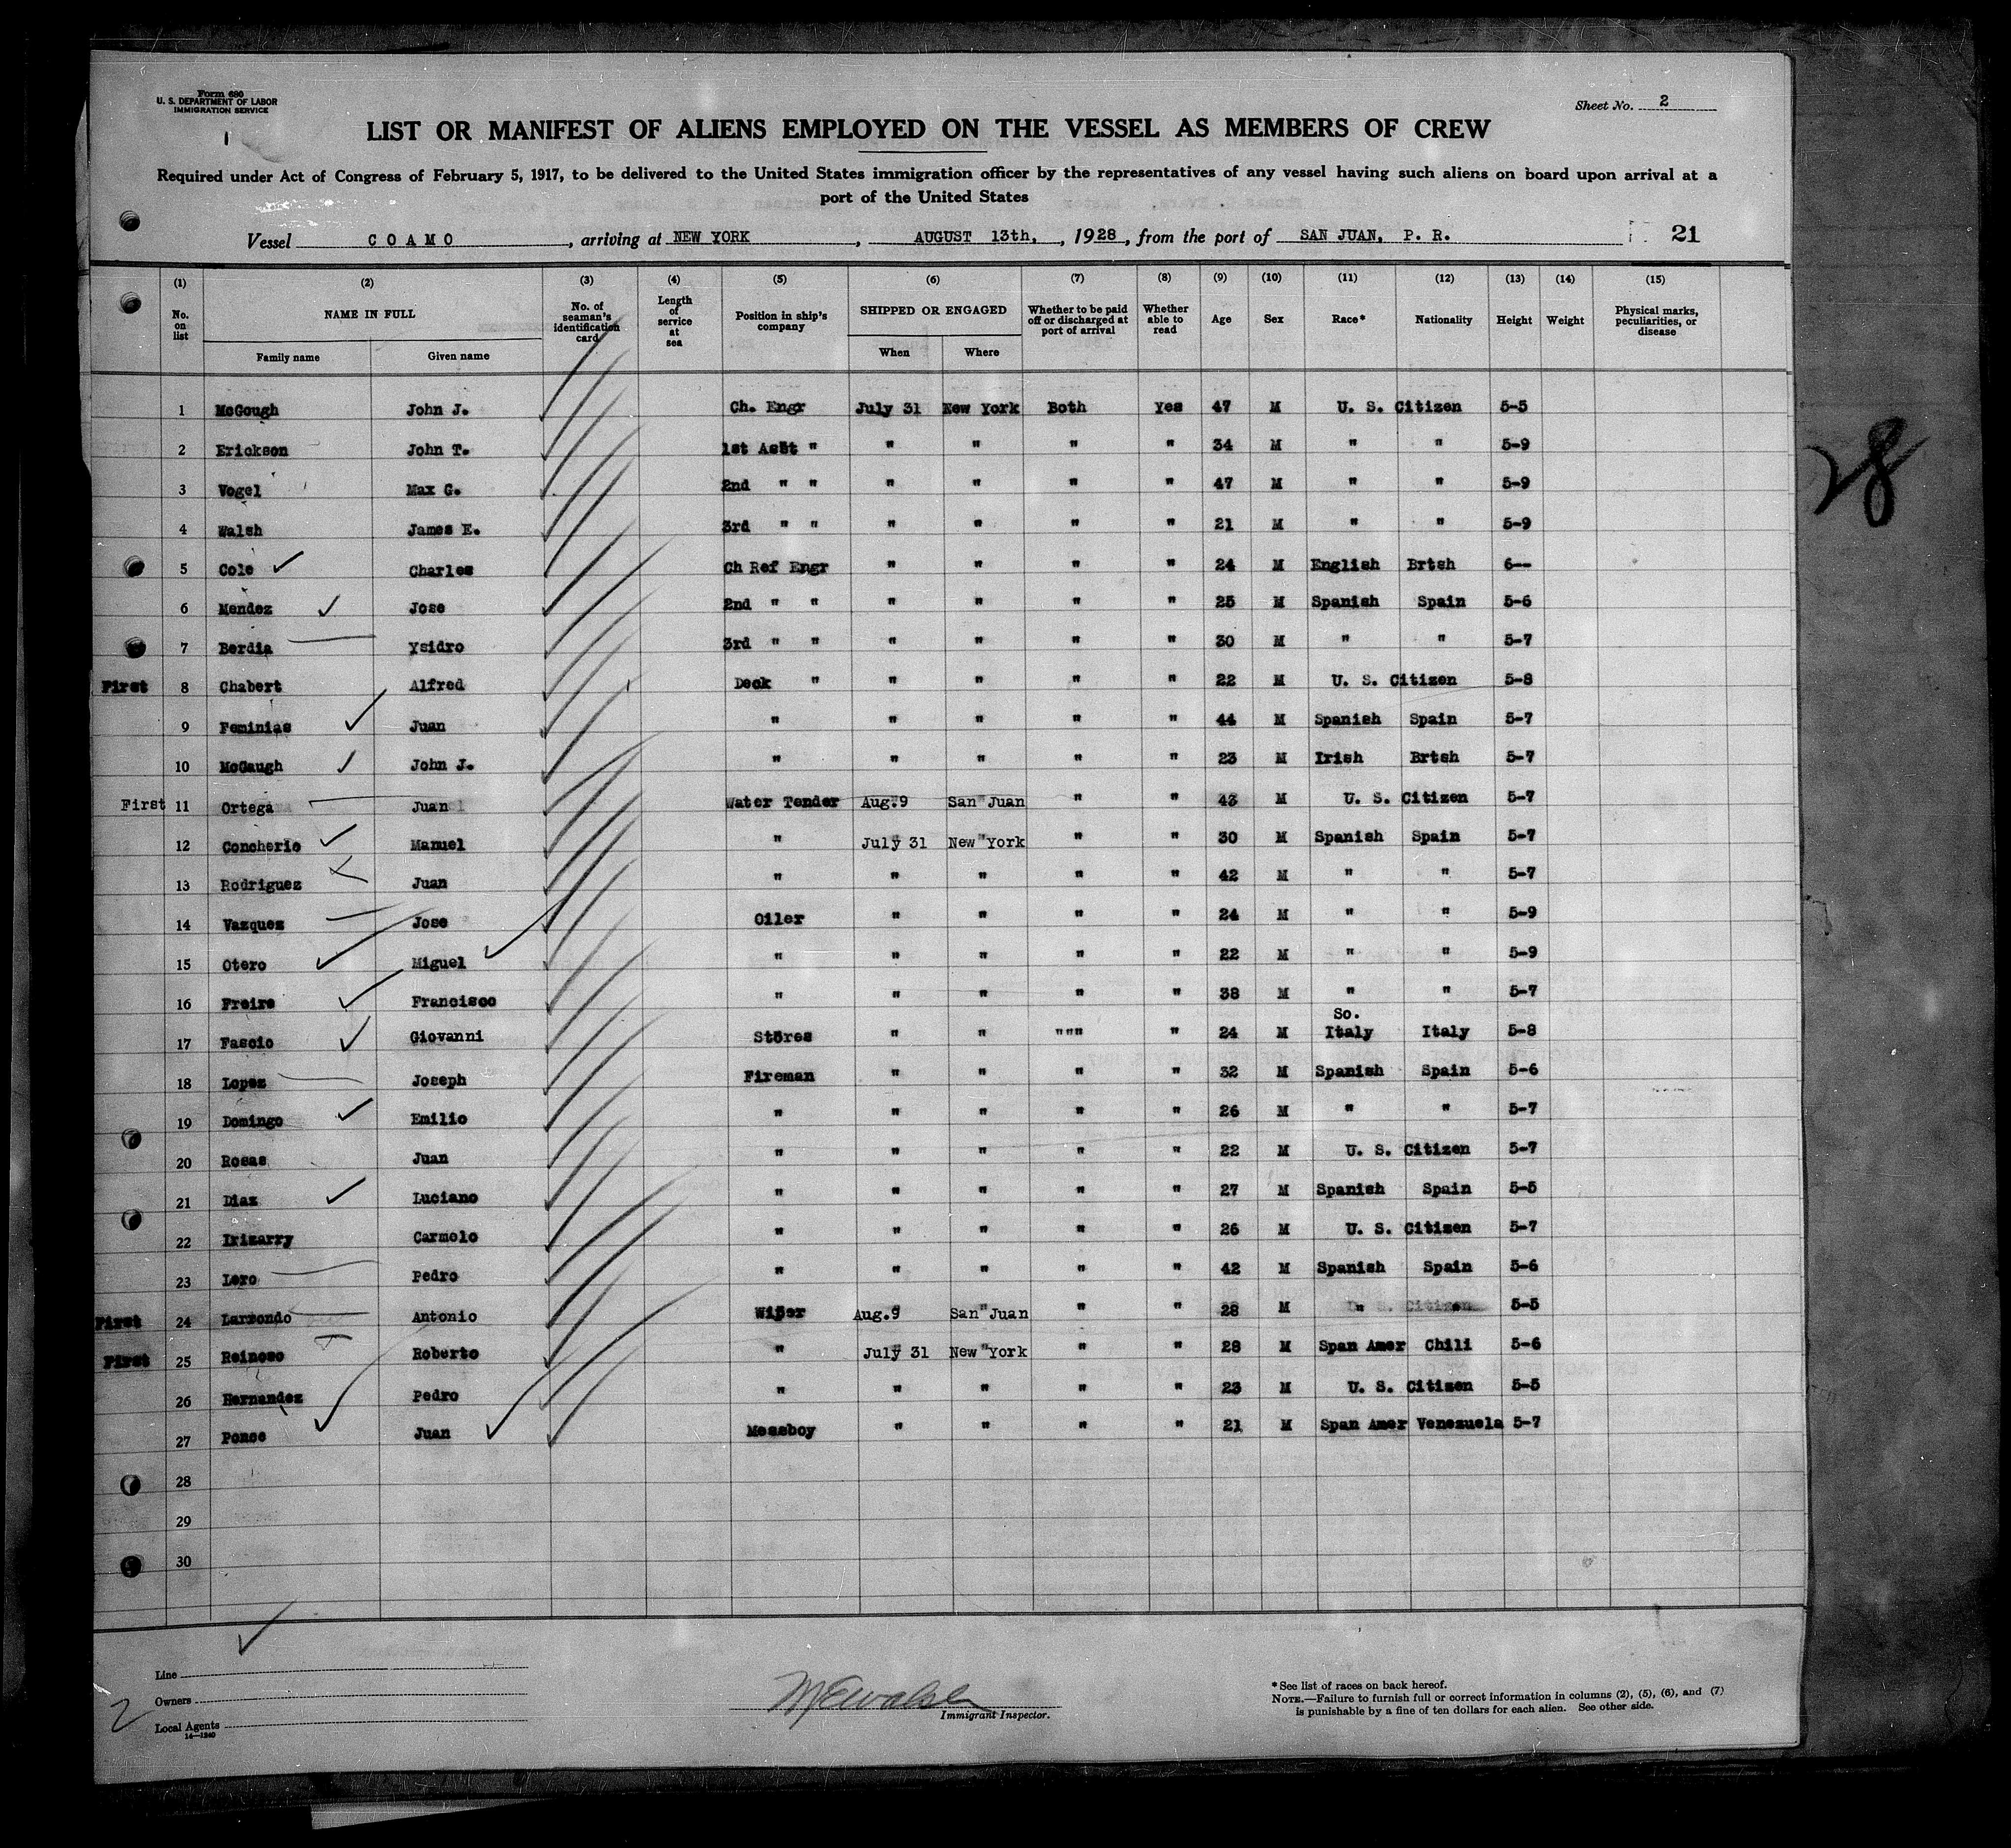 Form 680
U. S. DEPARTMENT OF LABOR
IMMIGRATION SERVICE
Sheet No. 2
LIST OR MANIFEST OF ALIENS EMPLOYED ON THE VESSEL AS MEMBERS OF CREW
Required under Act of Congress of February 5, 1917, to be delivered to the United States immigration officer by the representatives of any vessel having such aliens on board upon arrival at a
port of the United States
Vessel COAMO, arriving at NEW YORK, AUGUST 13th, 1928, from the port of SAN JUAN, P. R. 21
(1) (2) (3) (4) (5) (6) (7) (8) (9) (10) (11) (12) (13) (14) (15)
No. on list NAME IN FULL Family name Given name No. of seaman's identification card Length of service at sea Position in ship's company SHIPPED OR ENGAGED When Where Whether to be paid off or discharged at port of arrival Whether able to read Age Sex Race* Nationality Height Weight Physical marks, peculiarities, or disease
1 McGough John J. Ch. Engr July 31 New York Both Yes 47 M U. S. Citizen 5-5
2 Erickson John T. 1st Asst " " " " " 34 M " " 5-9
3 Vogel Max G. 2nd " " " " " " 47 M " " 5-9
4 Walsh James E. 3rd " " " " " " 21 M " " 5-9
5 Cole Charles Ch Ref Engr " " " " 24 M English Brtsh 6--
6 Mendez Jose 2nd " " " " " " 25 M Spanish Spain 5-6
7 Berdia Ysidro 3rd " " " " " " 30 M " " 5-7
First 8 Chabert Alfred Deck " " " " " 22 M U. S. Citizen 5-8
9 Feminias Juan " " " " " 44 M Spanish Spain 5-7
10 McGaugh John J. " " " " " 23 M Irish Brtsh 5-7
First 11 Ortega Juan Water Tender Aug. 9 San Juan " " 43 M U. S. Citizen 5-7
12 Concherio Manuel " July 31 New York " " 30 M Spanish Spain 5-7
13 Rodriguez Juan " " " " " 42 M " " 5-7
14 Vazquez Jose Oiler " " " " 24 M " " 5-9
15 Otero Miguel " " " " " 22 M " " 5-9
16 Freire Francisco " " " " " 38 M " " 5-7
17 Fascio Giovanni Stores " " """ " 24 M So. Italy Italy 5-8
18 Lopez Joseph Fireman " " " " 32 M Spanish Spain 5-6
19 Domingo Emilio " " " " " 26 M " " 5-7
20 Rosas Juan " " " " " 22 M U. S. Citizen 5-7
21 Diaz Luciano " " " " " 27 M Spanish Spain 5-5
22 Irizarry Carmelo " " " " " 26 M U. S. Citizen 5-7
23 Loro Pedro " " " " " 42 M Spanish Spain 5-6
First 24 Larrondo Antonio Wiper Aug. 9 San Juan " " 28 M " " 5-5
First 25 Reinoso Roberto " July 31 New York " " 28 M Span Amer Chili 5-6
26 Hernandez Pedro " " " " " 23 M U. S. Citizen 5-5
27 Ponce Juan Messboy " " " " 21 M Span Amer Venezuela 5-7
28
29
30
28
Line
Owners
Local Agents
14—1240
2
Immigrant Inspector.
* See list of races on back hereof.
NOTE.—Failure to furnish full or correct information in columns (2), (5), (6), and (7)
is punishable by a fine of ten dollars for each alien. See other side.